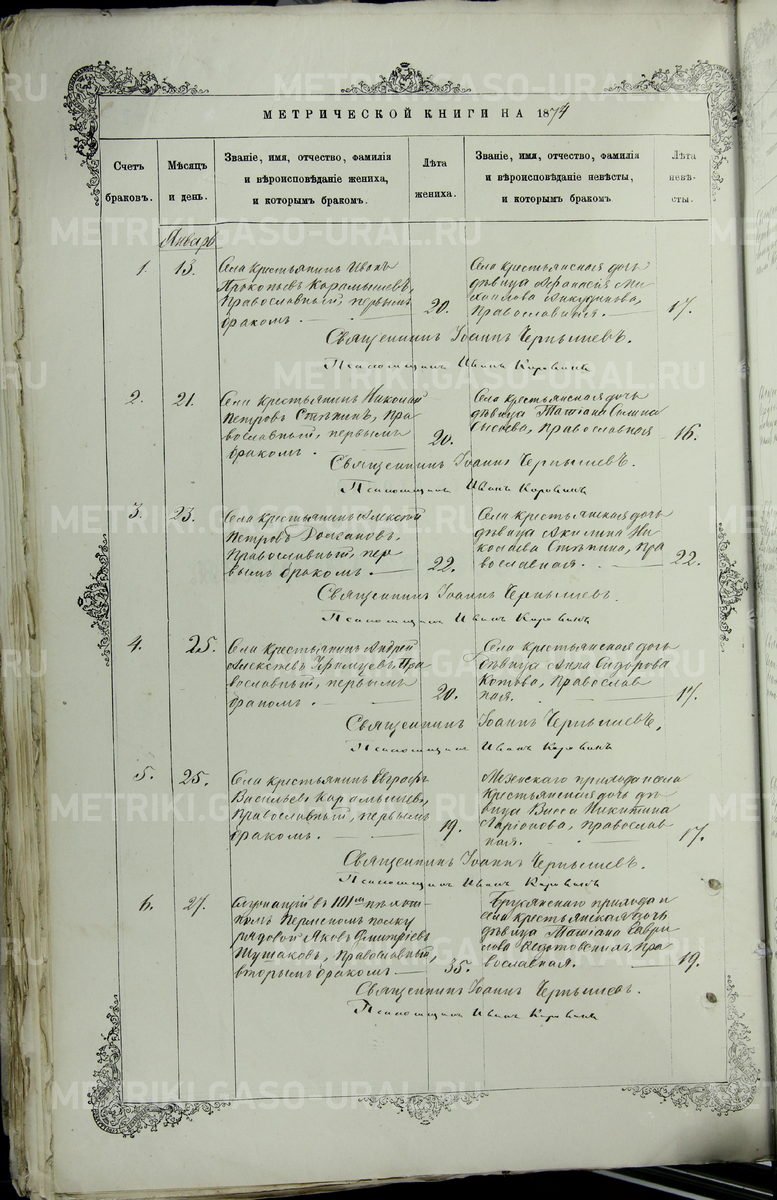 МЕТРИЧЕСКОЙ КНИГИ НА 1874
Счетъ браковъ.
Мѣсяцъ и день.
Званіе, имя, отчество, фамилія и вѣроисповѣданіе жениха, и которымъ бракомъ.
Лѣта жениха.
Званіе, имя, отчество, фамилія и вѣроисповѣданіе невѣсты, и которымъ бракомъ.
Лѣта невѣсты.
Январь
1. 13.
Села крестьянинъ Иванъ
Прокопьевъ Карамышевъ,
Православный, первымъ
бракомъ. 20.
Села крестьянская дочь
дѣвица Афанасія Ми
хаилова
Православная. 17.
Священникъ Іоаннъ Чернышевъ.
Псаломщикъ Иванъ Коровинъ
2. 21.
Села крестьянинъ Николай
Петровъ Стяжкинъ, Пра
вославный, первымъ
бракомъ. 20.
Села крестьянская дочь
дѣвица Татіана
Сысоева, Православная 16.
Священникъ Іоаннъ Чернышевъ.
Псаломщикъ Иванъ Коровинъ
3. 23.
Села крестьянинъ Алексѣй
Петровъ Долгановъ,
Православный, пер
вымъ бракомъ. 22.
Села крестьянская дочь
дѣвица Акилина Ни
колаева Пра
вославная. 22.
Священникъ Іоаннъ Чернышевъ.
Псаломщикъ Иванъ Коровинъ
4. 25.
Села крестьянинъ Андрей
Алексѣевъ Пра
вославный, первымъ
бракомъ. 20.
Села крестьянская дочь
дѣвица Анна Сидорова
Котова, Православ
ная. 17.
Священникъ Іоаннъ Чернышевъ,
Псаломщикъ Иванъ Коровинъ
5. 25.
Села крестьянинъ Евграфъ
Васильевъ Карамышевъ,
Православный, первымъ
бракомъ. 19.
прихода и села
крестьянская дочь дѣ
вица Васса Никитина
Ларіонова, православ
ная. 17.
Священникъ Іоаннъ Чернышевъ.
Псаломщикъ Иванъ Коровинъ
6. 27.
Служащій въ 101м пѣхот
номъ Пермскомъ полку
рядовой Яковъ Дмитріевъ
Шушаковъ, Православный,
вторымъ бракомъ 35.
Бруянскаго прихода и
села крестьянская дочь
дѣвица Татіана Гаври
лова Пра
вославная. 19.
Священникъ Іоаннъ Чернышевъ.
Псаломщикъ Иванъ Коровинъ
METRIKI.GASO-URAL.RU